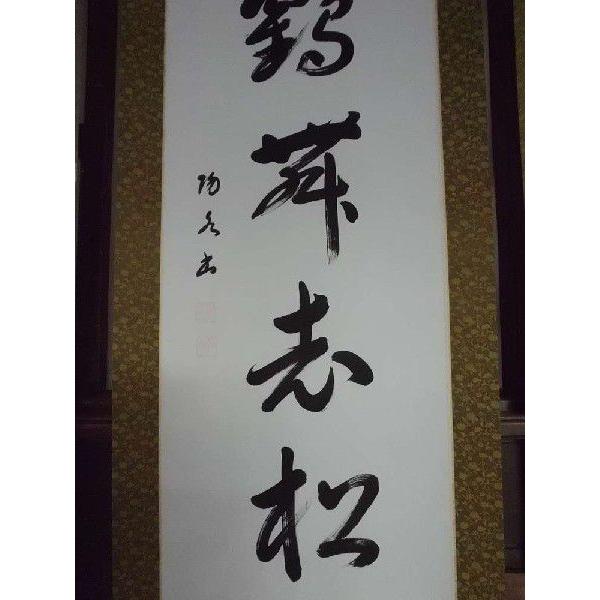 鶴舞老松
陽岳書